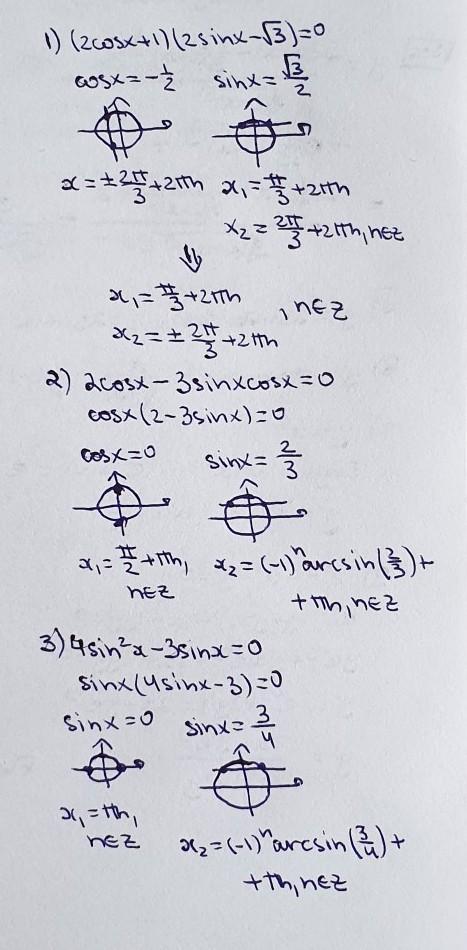 1) (2cosx+1)(2sinx-√3)=0
cosx=-1/2 sinx=√3/2
x=±2π/3+2πn x₁=π/3+2πn
x₂=2π/3+2πn, n∈Z
⇓
x₁=π/3+2πn
, n∈Z
x₂=±2π/3+2πn
2) 2cosx-3sinxcosx=0
cosx(2-3sinx)=0
cosx=0 sinx=2/3
x₁=π/2+πn, x₂=(-1)ⁿarcsin(2/3)+
n∈Z +πn, n∈Z
3) 4sin²x-3sinx=0
sinx(4sinx-3)=0
sinx=0 sinx=3/4
x₁=πn,
n∈Z x₂=(-1)ⁿarcsin(3/4)+
+πn, n∈Z